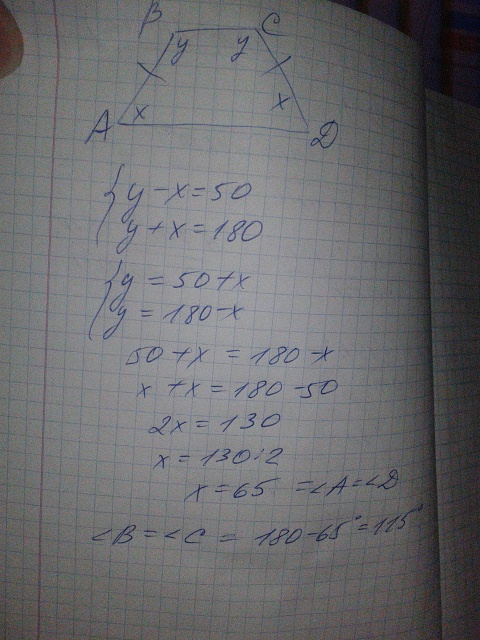 B C
y y
x x
A D
{ y - x = 50
y + x = 180
{ y = 50 + x
y = 180 - x
50 + x = 180 - x
x + x = 180 - 50
2x = 130
x = 130 : 2
x = 65 = ∠A = ∠D
∠B = ∠C = 180 - 65° = 115°